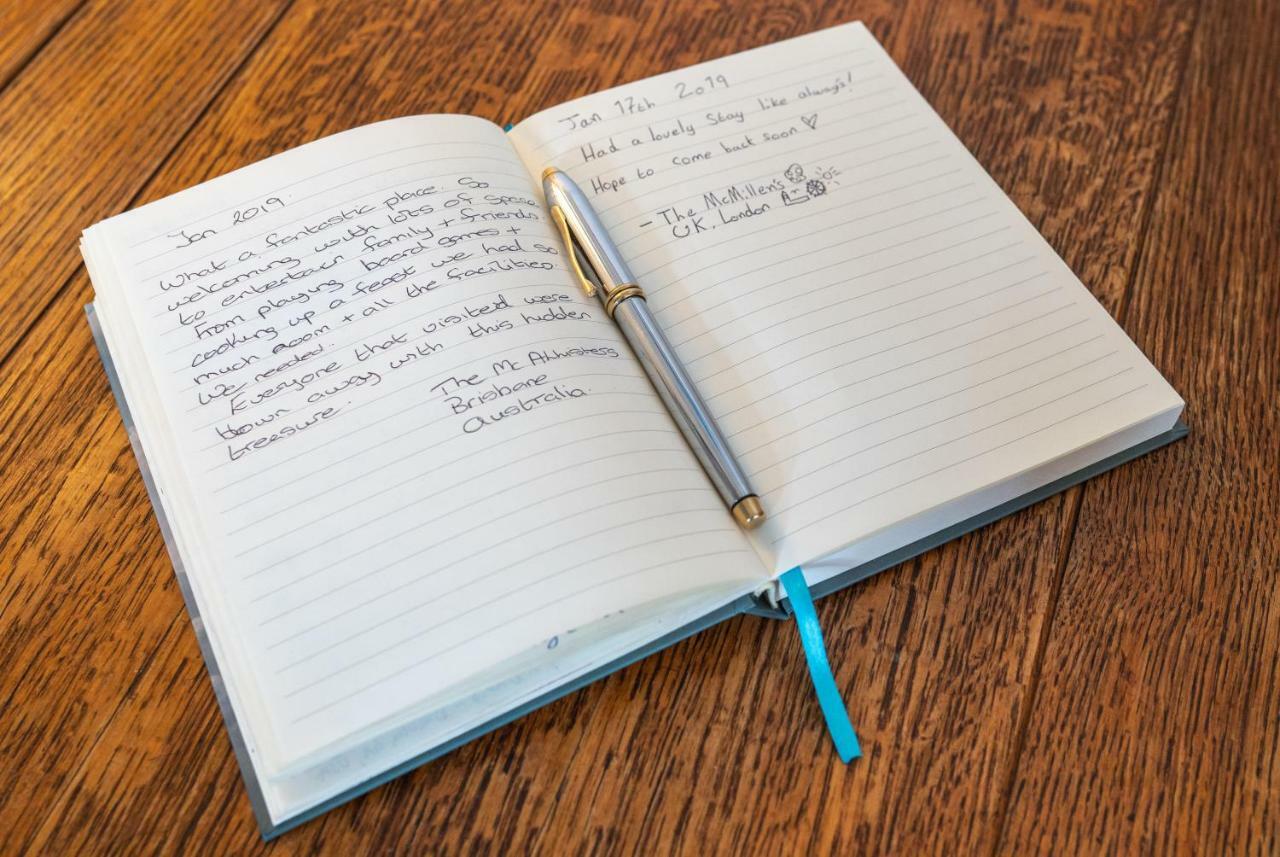 Jan 2019.
What a fantastic place. So
welcoming with lots of space
to entertain family + friends.
From playing board games +
cooking up a feast we had so
much room + all the facilities
we needed.
Everyone that visited were
blown away with this hidden
treasure.
The Mc Allisters
Brisbane
Australia.
Jan 17th 2019
Had a lovely Stay like always!
Hope to come back soon ♡
- The McMillen's
UK, London